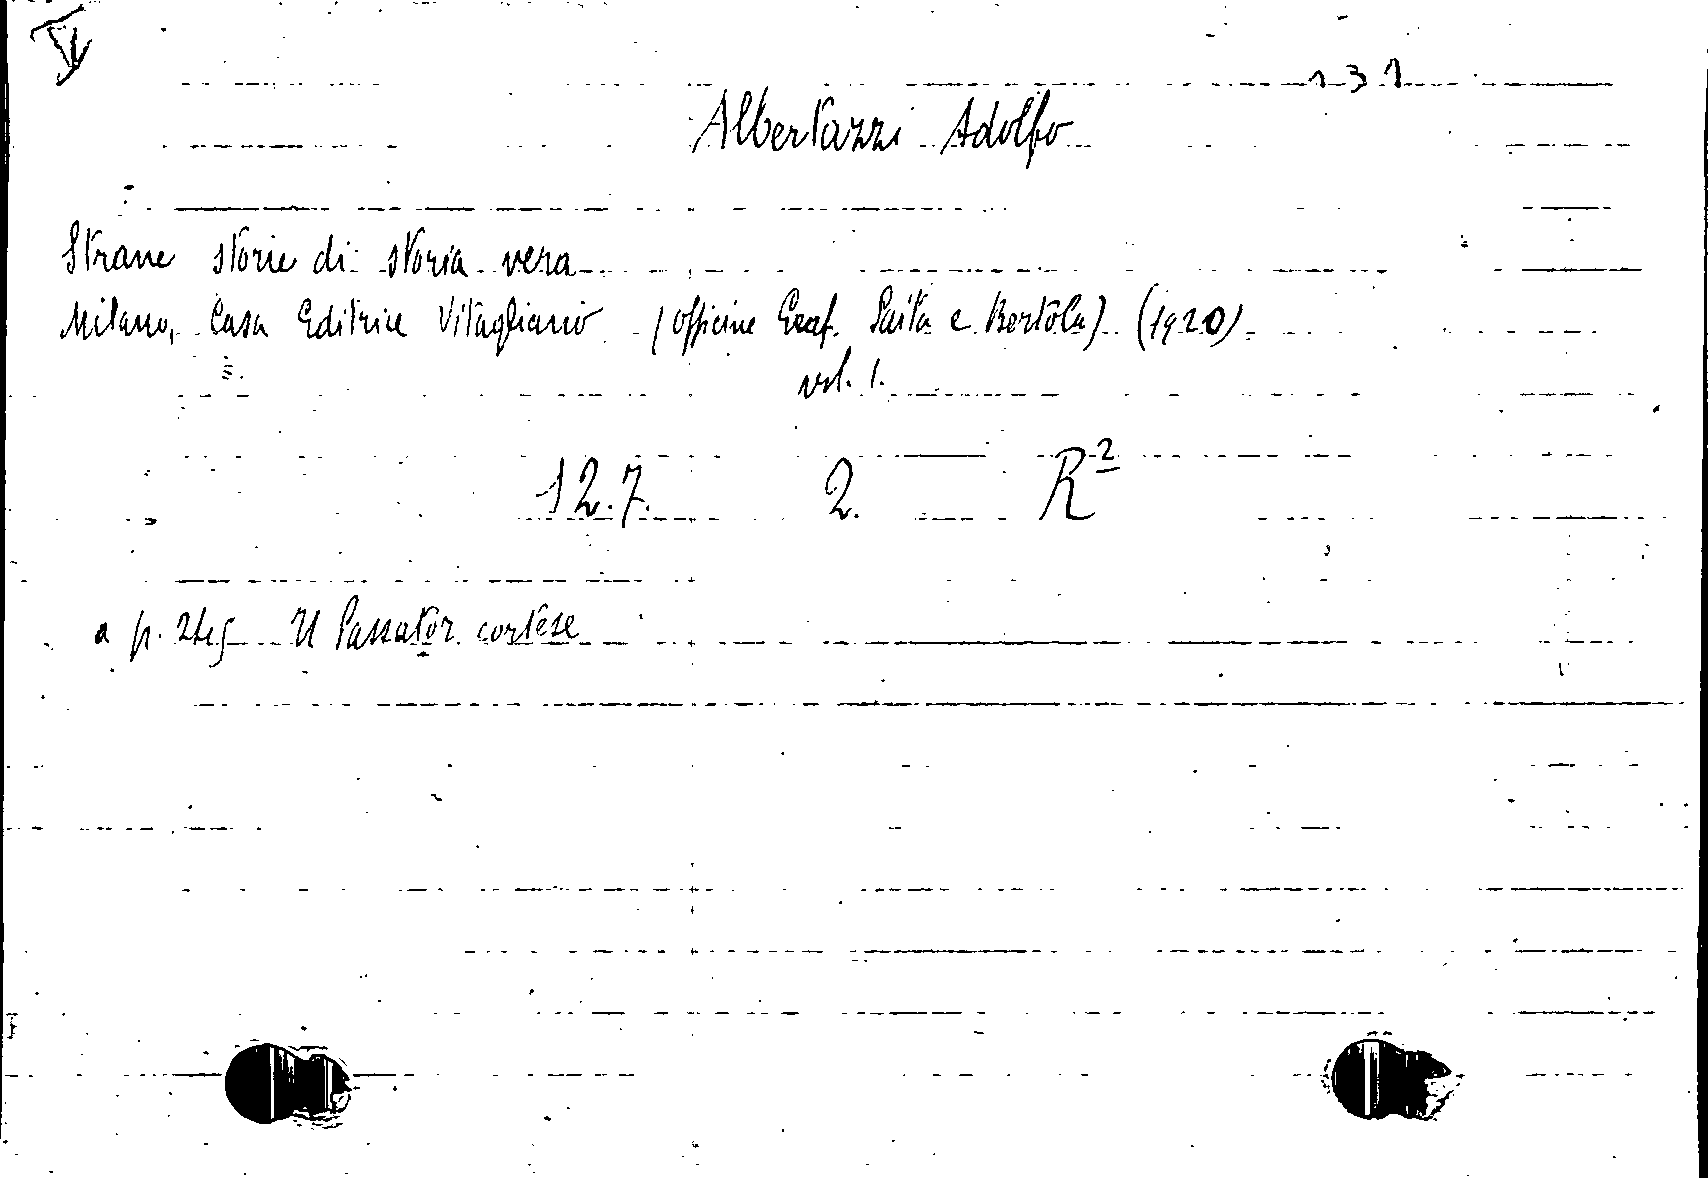 131
Albertazzi Adolfo
Strane storie di storia vera
Milano, Casa Editrice Vitagliano (Officine Graf. Saita e Bertola) (1920)
vol. 1.
12.7. 2. R²
a p. 245 Il Passator cortese